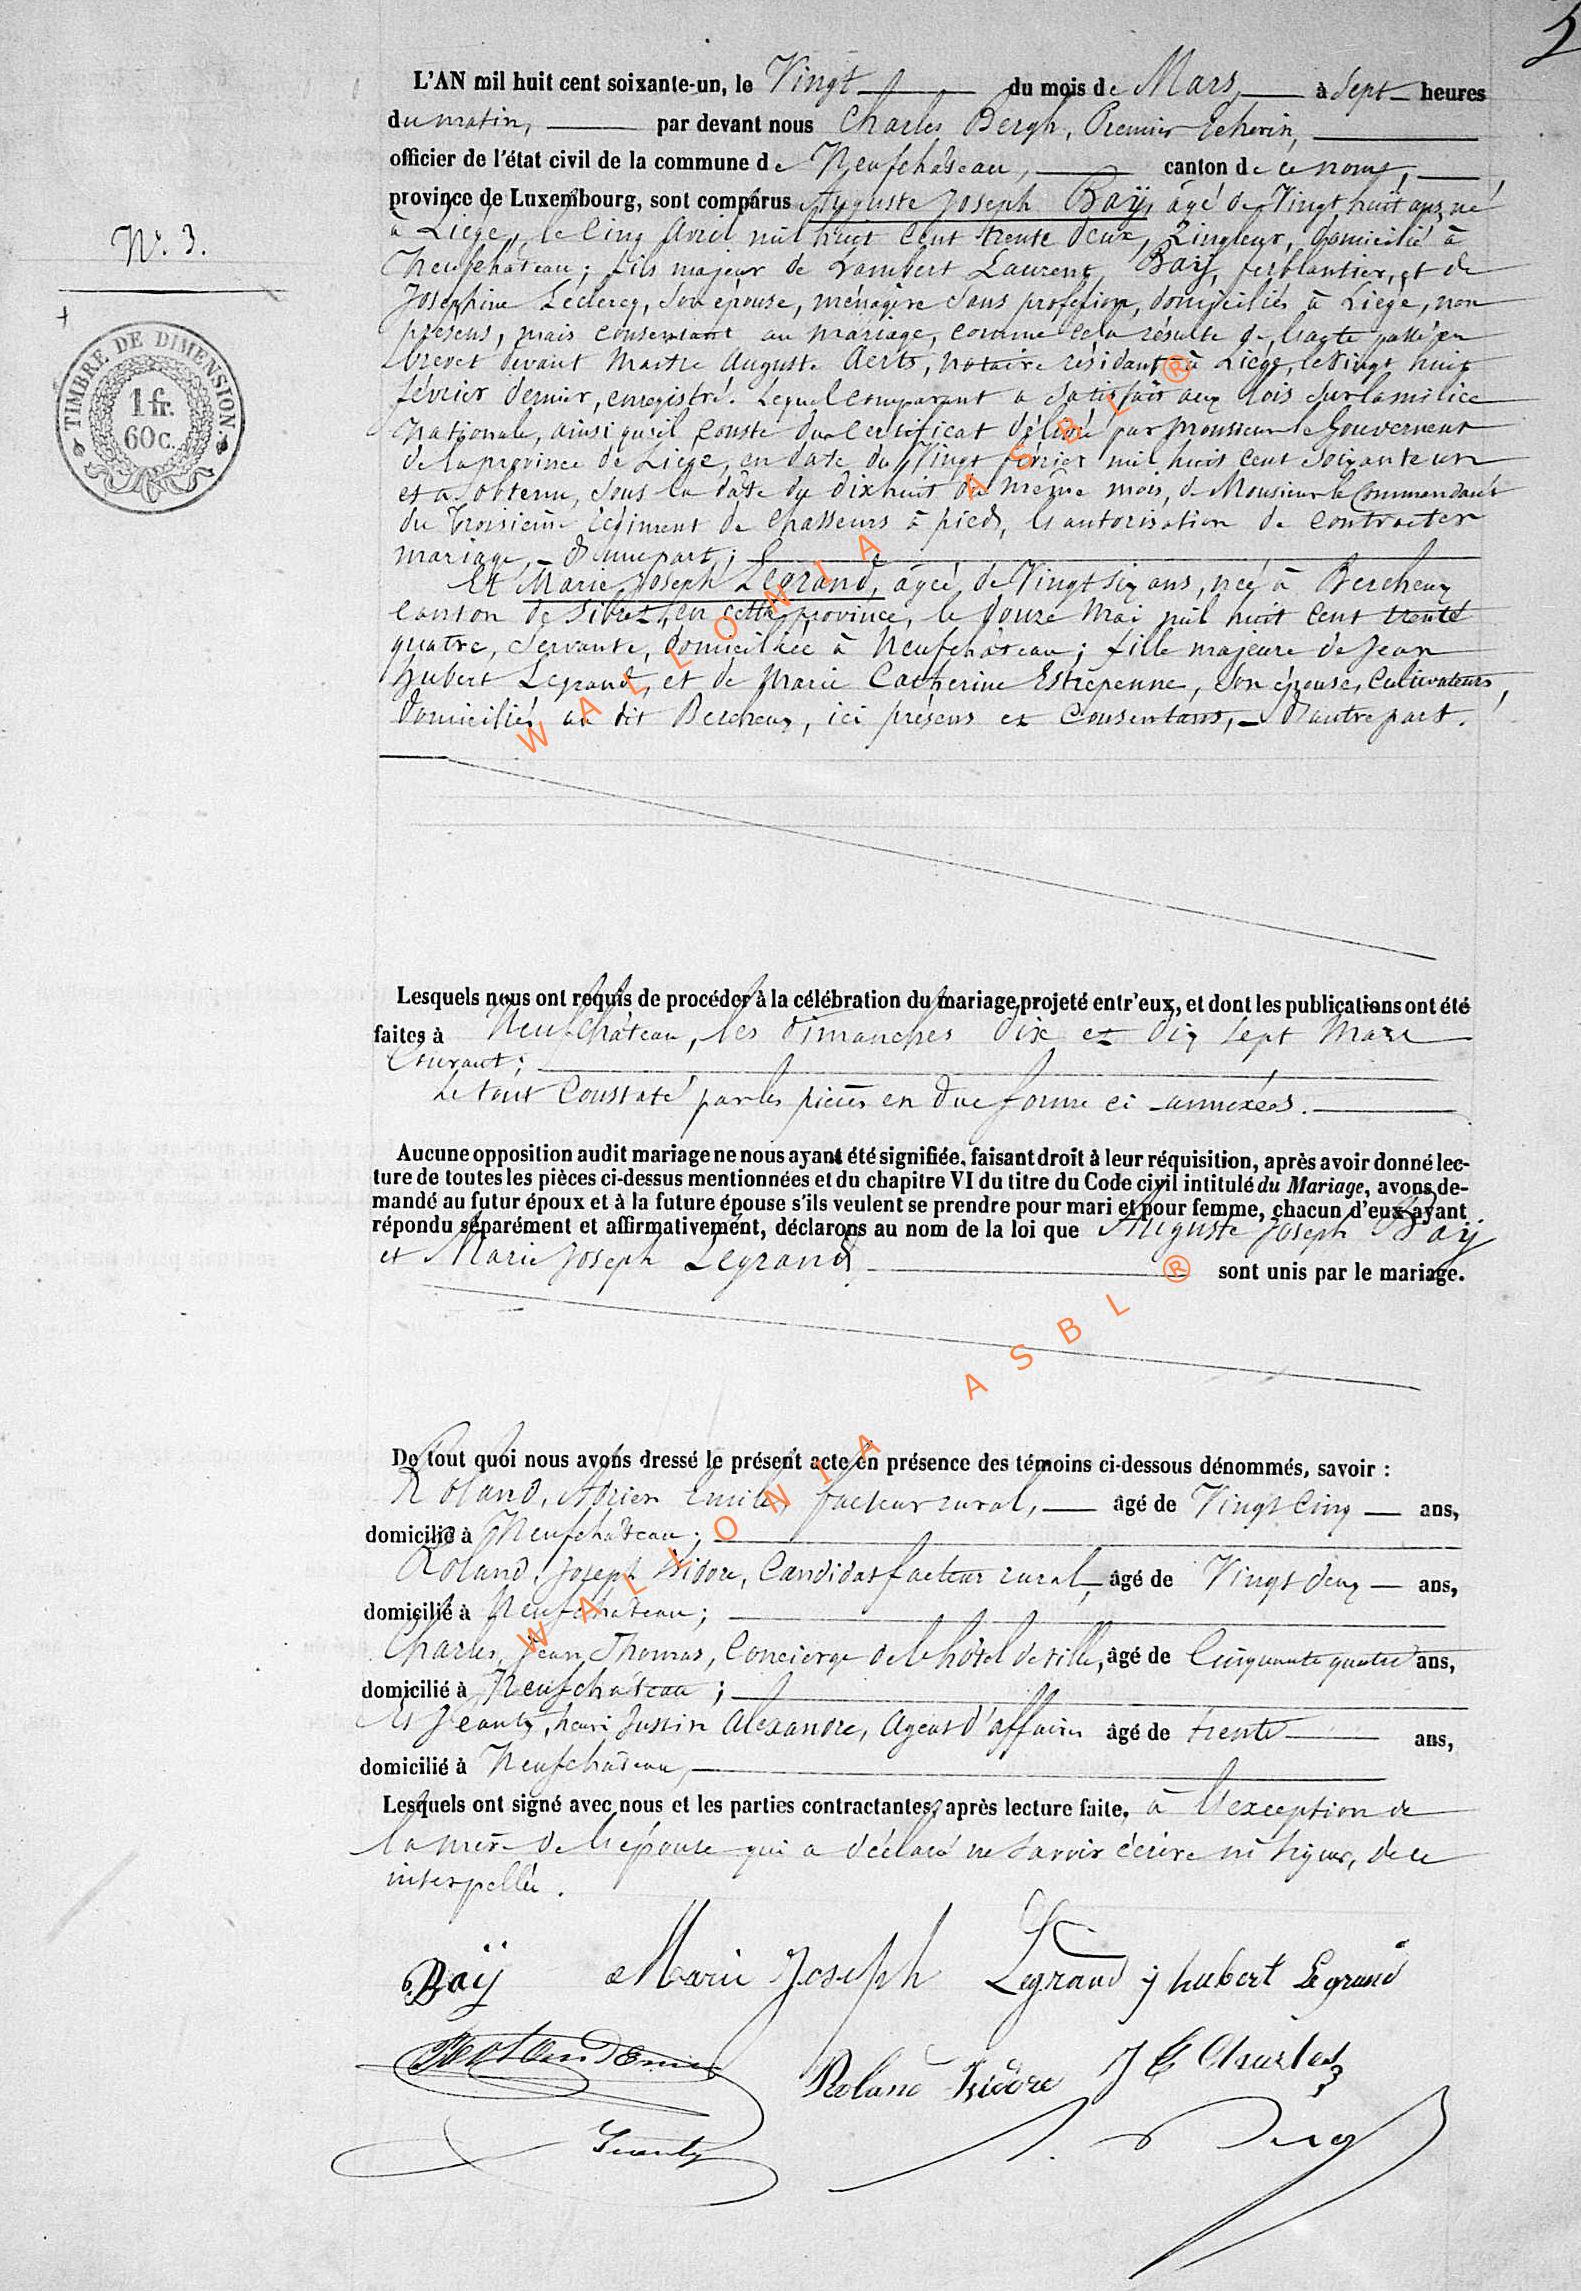 L'AN mil huit cent soixante-un, le Vingt du mois de Mars, à Sept heures
du matin, par devant nous Charles Bergh, Premier Echevin,
officier de l'état civil de la commune de Neufchâteau, canton de ce nom,
province de Luxembourg, sont comparus Auguste Joseph Baÿ, âgé de Vingt huit ans, né
à Liége, le Cinq Avril mil huit Cent trente deux, Zingueur, domicilié à
Neufchâteau; fils majeur de Lambert Laurent Baÿ, ferblantier, et de
Joséphine Léclercq, son épouse, ménagère sans profession, domiciliés à Liège, non
présens, mais consentant au mariage, comme cela résulte de l'acte passé en
brevet devant Maitre Auguste Aerts, notaire résidant à Liége, le Vingt huit
février dernier, enregistré. Lequel comparant a satisfait aux lois sur la milice
Nationale, ainsi qu'il conste du Certificat délivré par Monsieur le Gouverneur
de la province de Liége, en date du Vingt février mil huit cent soixante un
et a obtenu, sous la date du dix huit du même mois, de Monsieur le Commandant
du Troisième régiment de Chasseurs à pied, l'autorisation de contracter
mariage, d'une part;
Et Marie Joseph Legrand, âgée de Vingt six ans, née à Bercheux
Canton de Sibret, en cette province, le douze Mai mil huit Cent trente
quatre, Servante, domiciliée à Neufchâteau; fille majeure de Jean
hubert Legrand, et de Marie Catherine Estrepenne, son épouse, Cultivateurs,
domiciliés au dit Bercheux, ici présens et Consentans, d'autre part.
N°. 3.
TIMBRE DE DIMENSION
1 fr.
60c.
Lesquels nous ont requis de procéder à la célébration du mariage projeté entr'eux, et dont les publications ont été
faites à Neufchâteau, les dimanches dix et dix sept Mars
Courant;
Le tout Constaté par les pièces en due forme ci annexées.
Aucune opposition audit mariage ne nous ayant été signifiée, faisant droit à leur réquisition, après avoir donné lec-
ture de toutes les pièces ci-dessus mentionnées et du chapitre VI du titre du Code civil intitulé du Mariage, avons de-
mandé au futur époux et à la future épouse s'ils veulent se prendre pour mari et pour femme, chacun d'eux ayant
répondu séparément et affirmativement, déclarons au nom de la loi que Auguste Joseph Baÿ
et Marie Joseph Legrand sont unis par le mariage.
De tout quoi nous avons dressé le présent acte en présence des témoins ci-dessous dénommés, savoir :
Roland, Adrien Emile, facteur rural, âgé de Vingt Cinq ans,
domicilié à Neufchâteau;
Roland, Joseph Isidore, Candidat facteur rural, âgé de Vingt deux ans,
domicilié à Neufchâteau;
Charles, Jean Thomas, Concierge de l'hôtel de ville, âgé de Cinquante quatre ans,
domicilié à Neufchâteau;
Et Jeanty, henri Justin Alexandre, Agent d'affaires âgé de trente ans,
domicilié à Neufchâteau,
Lesquels ont signé avec nous et les parties contractantes, après lecture faite, à l'exception de
la mère de l'épouse qui a déclaré ne savoir écrire ni signer, de ce
interpellée.
Baÿ Marie Joseph Legrand j hubert Legrand
Roland Emile Roland Isidore J T Charles
Jeanty
WALLONIA ASBL ®
WALLONIA ASBL ®